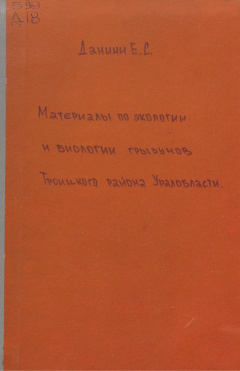 Д 18
Данини Е.С
Материалы по экологии
и биологии грызунов
Троицкого района Уралобласти.